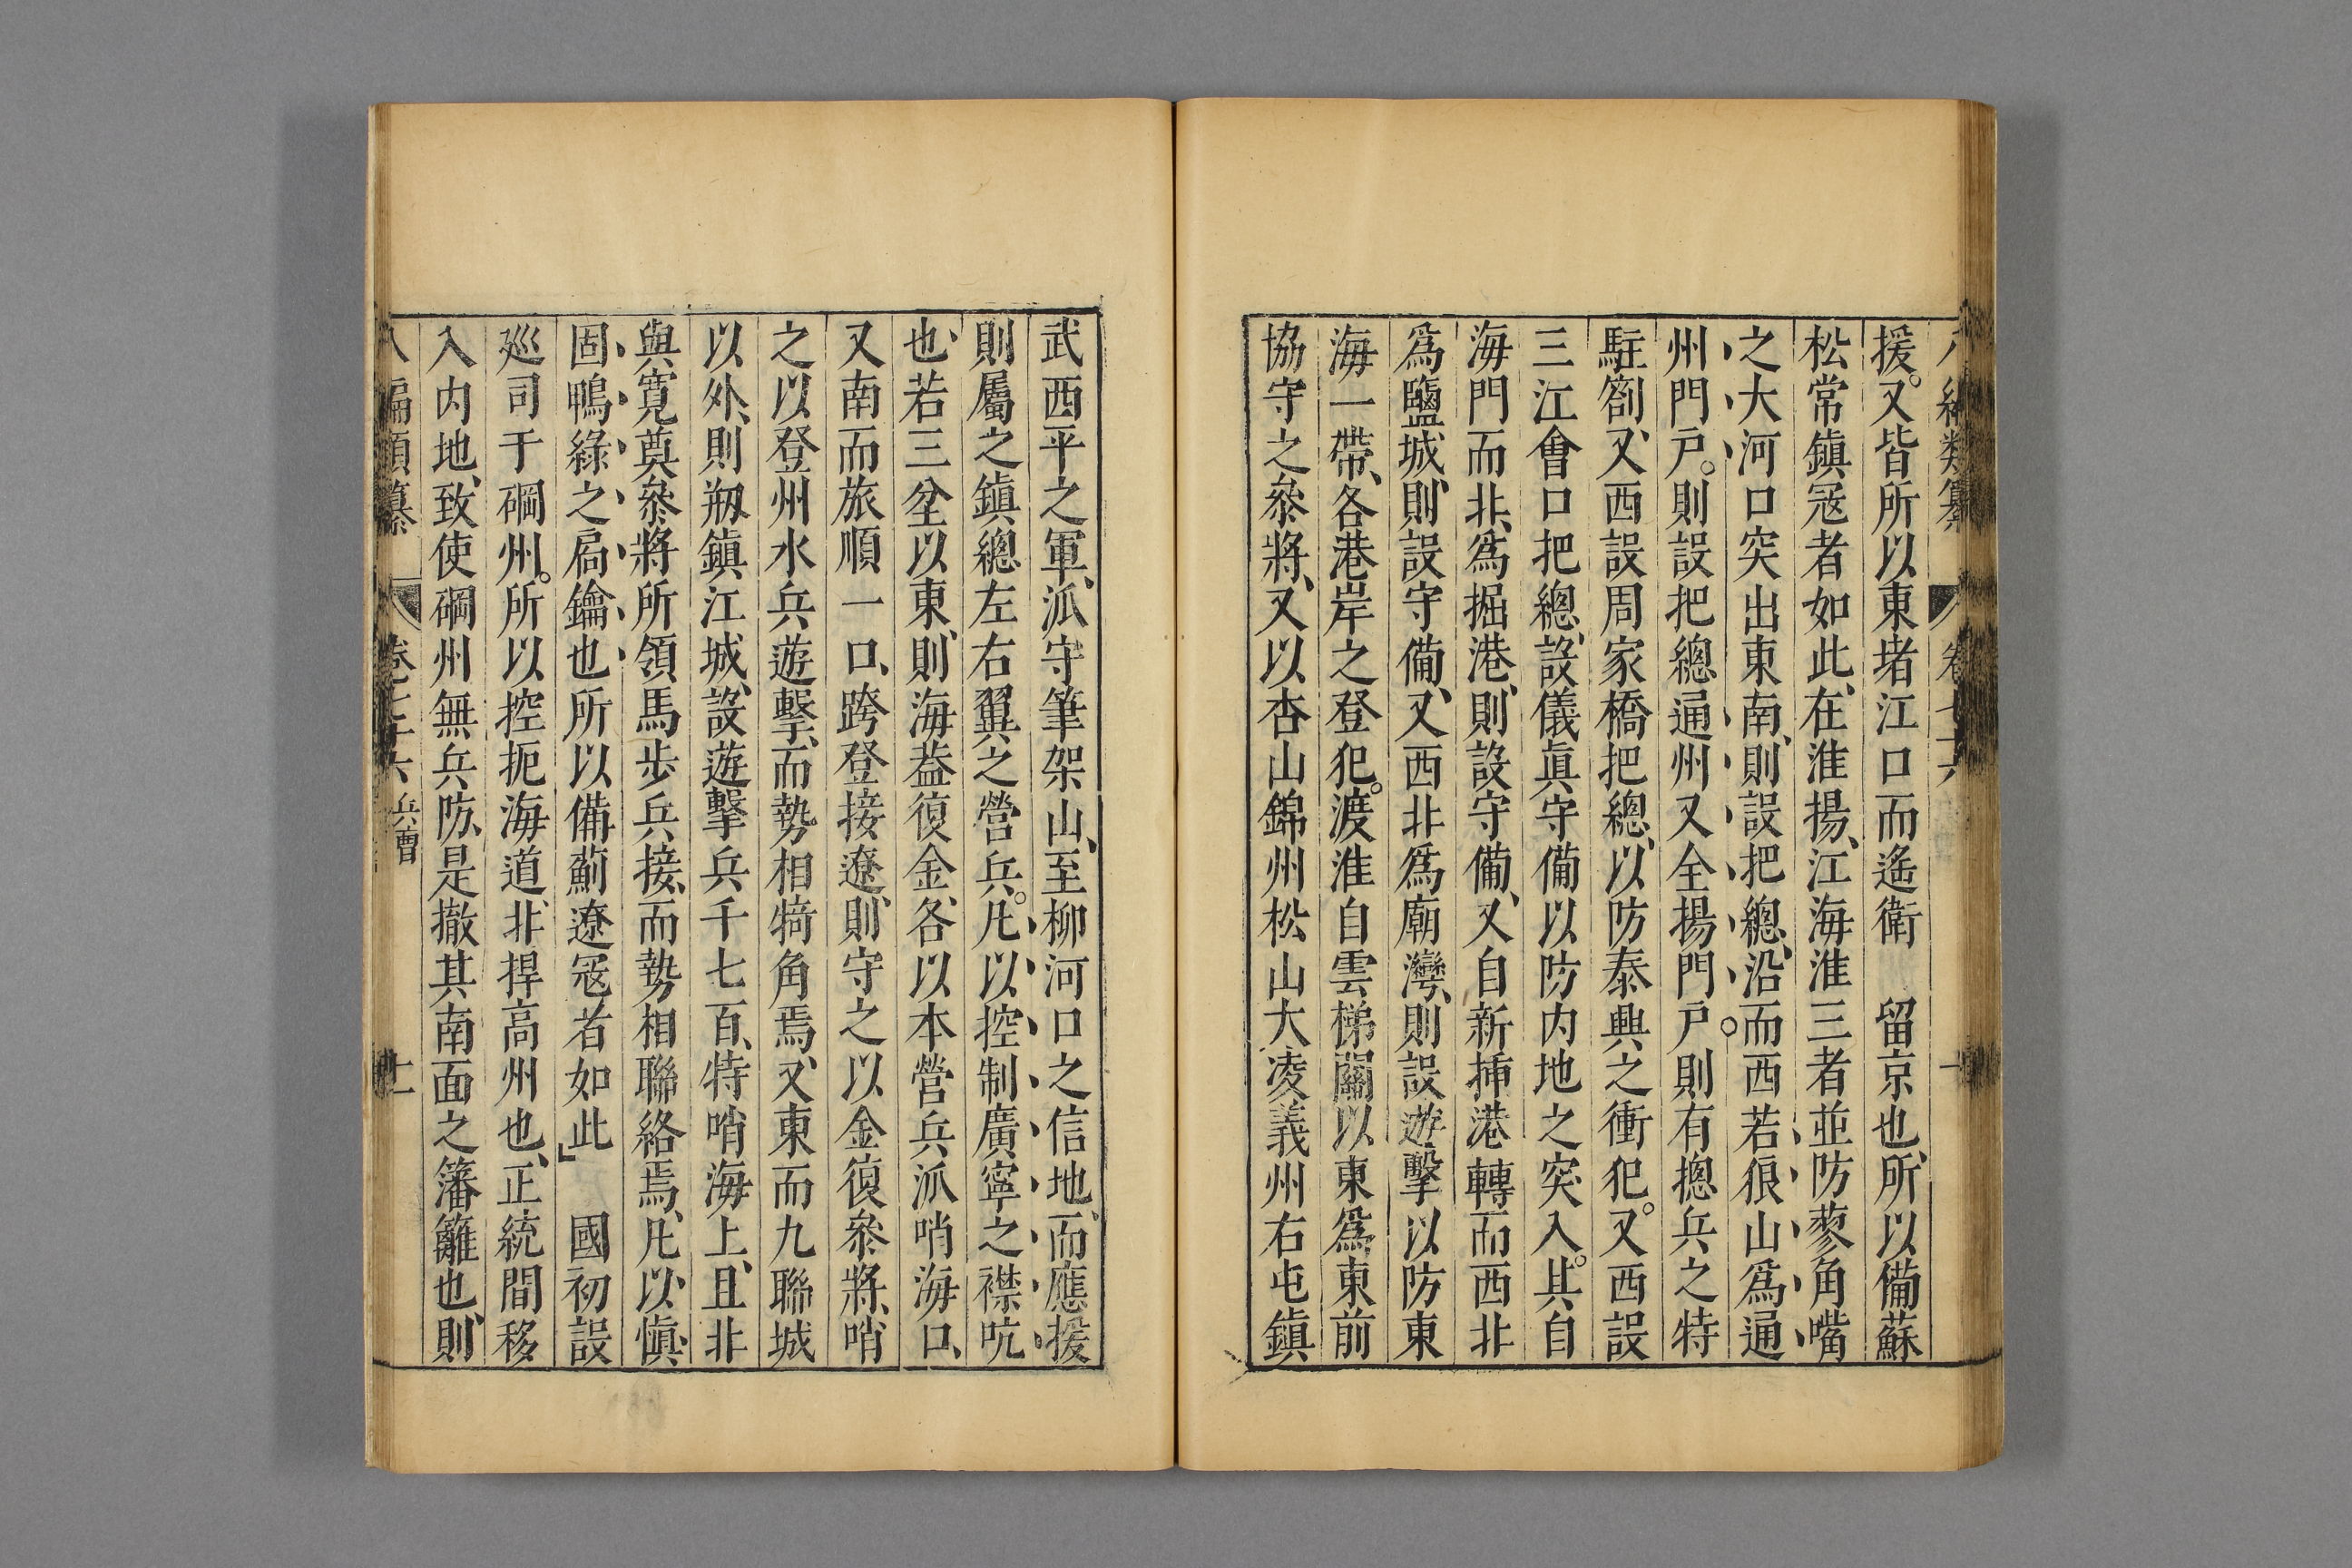 八編類纂 卷七十六
援。又皆所以東堵江口而遙衛 留京也、所以備蘇
松常鎮寇者如此、在淮揚、江海淮三者並防蓼角嘴
之大河口突出東南、則設把總、沿而西若狼山爲通
州門戶。則設把總通州又全揚門戶。則有摠兵之特
駐劄、又西設周家橋把總、以防泰興之衝犯。又西設
三江會口把總、設儀眞守備以防内地之突入。其自
海門而北、爲掘港、則設守備、又自新揷港轉而西北
爲鹽城、則設守備、又西北爲廟灣、則設遊擊以防東
海一帶、各港岸之登犯。渡淮自雲梯關以東爲東前
協守之叅將、又以杏山錦州松山大凌義州右屯鎮
武西平之軍、派守筆架山、至柳河口之信地、而應援
則屬之鎮總左右翼之營兵。凡以控制廣寧之襟吭
也、若三岔以東、則海葢復金、各以本營兵派哨海口、
又南而旅順一口、跨登接遼、則守之以金復叅將、哨
之以登州水兵遊擊、而勢相犄角焉、又東而九聯城
以外、則剏鎮江城、設遊擊兵千七百、特哨海上、且北
與寬奠叅將所領馬步兵接、而勢相聯絡焉、凡以愼
固鴨綠之扃鑰也所以備薊遼寇者如此」 國初設
廵司于碙州。所以控扼海道、非捍高州也、正統間移
入内地、致使碙州無兵防、是撤其南面之籓籬也、則
八編類纂 卷七十六 兵曹 十一